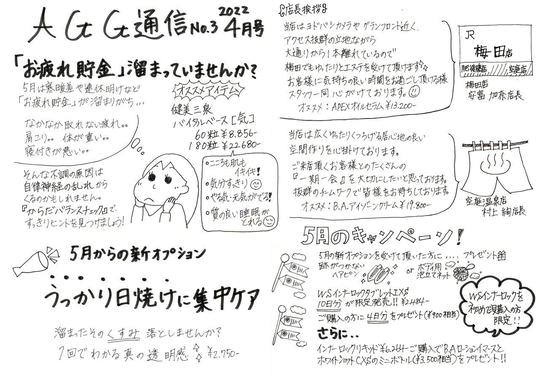 AGG通信 No.3 2022 4月号
「お疲れ貯金」溜まっていませんか?
5月は寒暖差や連休明けなど
「お疲れ貯金」が溜まりがち…
なかなか取れない疲れ。
肩こり。。体が重い。。
寝付きが悪い。。
そんな不調の原因は
自律神経の乱れから
くるのかもしれません。
『からだバランスチェック』で
すっきりヒントを見つけましょう!
オススメアイテム
健美三泉
バイタルベース[気]
60粒 ¥8.856-
180粒 ¥22.680-
・こころも肌もイキイキ!
・気分すっきり
・やる気・元気がでる!
・質の良い睡眠がとれる
5月からの新オプション
うっかり日焼けに集中ケア
溜まったそのくすみ落としませんか?
1回でわかる真の透明感 ¥2.750-
店長挨拶
当店はヨドバシカメラやグランフロント近く、
アクセス抜群の立地ながら
大通りから1本離れているので
梅田でもゆったりとエステを受けて頂けます
お客様に気持ちの良い時間をお過ごし頂ける様
スタッフ一同心がけております。
オススメ:APEXオイルセラム ¥13.200-
JR
梅田店
梅田店
安冨 加奈店長
当店は広くゆったりくつろげる居心地の良い
空間作りを心掛けております。
ご来店頂くお客様とのたくさんの
『一期一会』を大切にしたいと思っております。
抜群のホームケアで皆様をお待ちしております。
オススメ:B.A.アイゾーンクリーム ¥19.800-
空庭温泉店
村上 絢店長
5月のキャンペーン!
5月の新オプションを受けて頂いた方に…。プレゼント
跡がつかないヘアピン or ボディ用泡立てネット
WSインナーロックタブレットIXS
10日分が限定発売!! ¥2.484-
ご購入の方に4日分をプレゼント(¥900相当)
WSインナーロックを初めてご購入の方限定!!
さらに..
インナーロックリキッド ¥6.264-ご購入でB.A.ローションイマースと
ホワイトショットCXSのミニボトル(¥3.500相当)をプレゼント!!